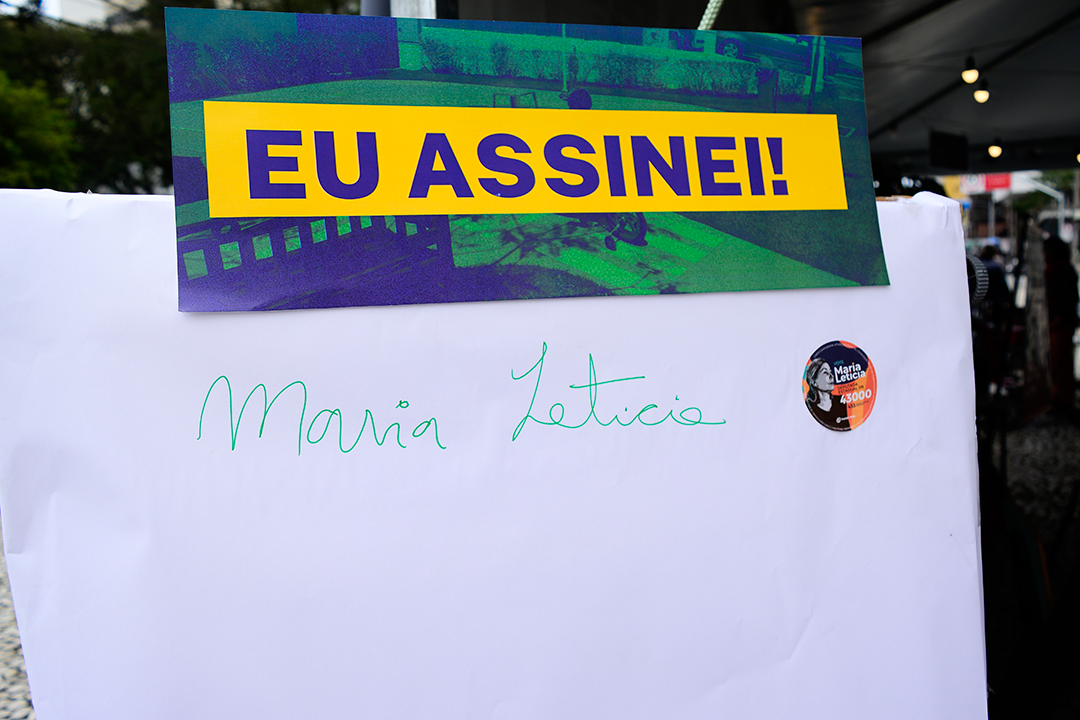 EU ASSINEI!
Maria Leticia
Maria
Letícia
43000